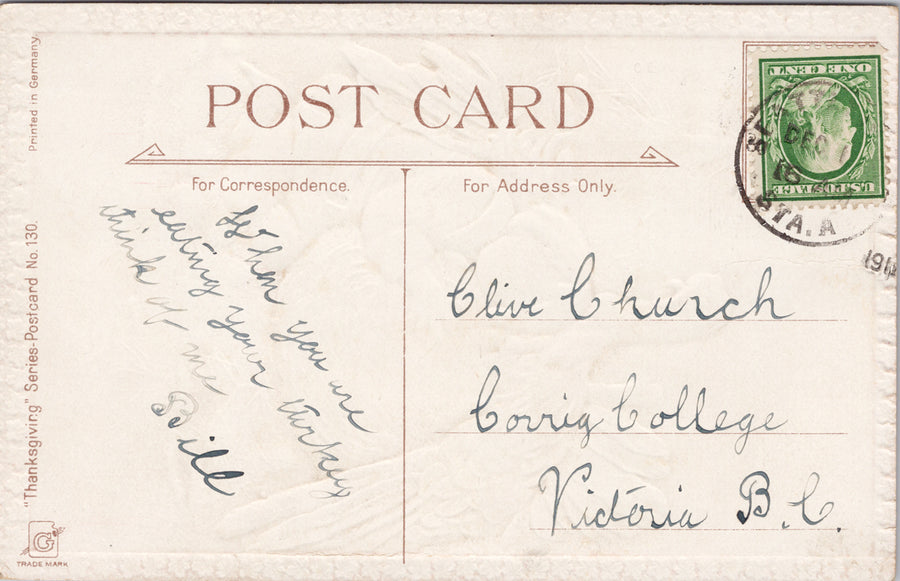 POST CARD
For Correspondence.
For Address Only.
When you are
eating your turkey
think of me
Bill
Clive Church
Corrig College
Victoria B.C.
Printed in Germany.
"Thanksgiving" Series-Postcard No. 130.
G
TRADE MARK
ONE CENT
U.S. POSTAGE
DEC
STA. A
191